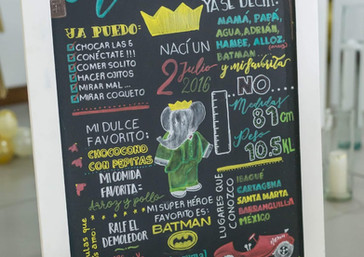 YA PUEDO:
CHOCAR LAS 5
CONÉCTATE!!!
COMER SOLITO
HACER OJITOS
MIRAR MAL...
MIRAR COQUETO
NACÍ UN
2 Julio
2016
YA SÉ DECIR:
MAMÁ, PAPÁ,
AGUA, ADRIÁN,
HAMBE, ALLOZ,
BATMAN
y mi favorita
NO...
Medidas
81 cm
Peso
10.5 KL
MI DULCE
FAVORITO:
CHOCOCONO
CON PEPITAS
MI COMIDA
FAVORITA:
Arroz y pollo
MI SUPER HÉROE
FAVORITO ES:
BATMAN
RALF EL
DEMOLEDOR
LUGARES QUE
CONOZCO
IBAGUÉ
CARTAGENA
SANTA MARTA
BARRANQUILLA
MÉXICO